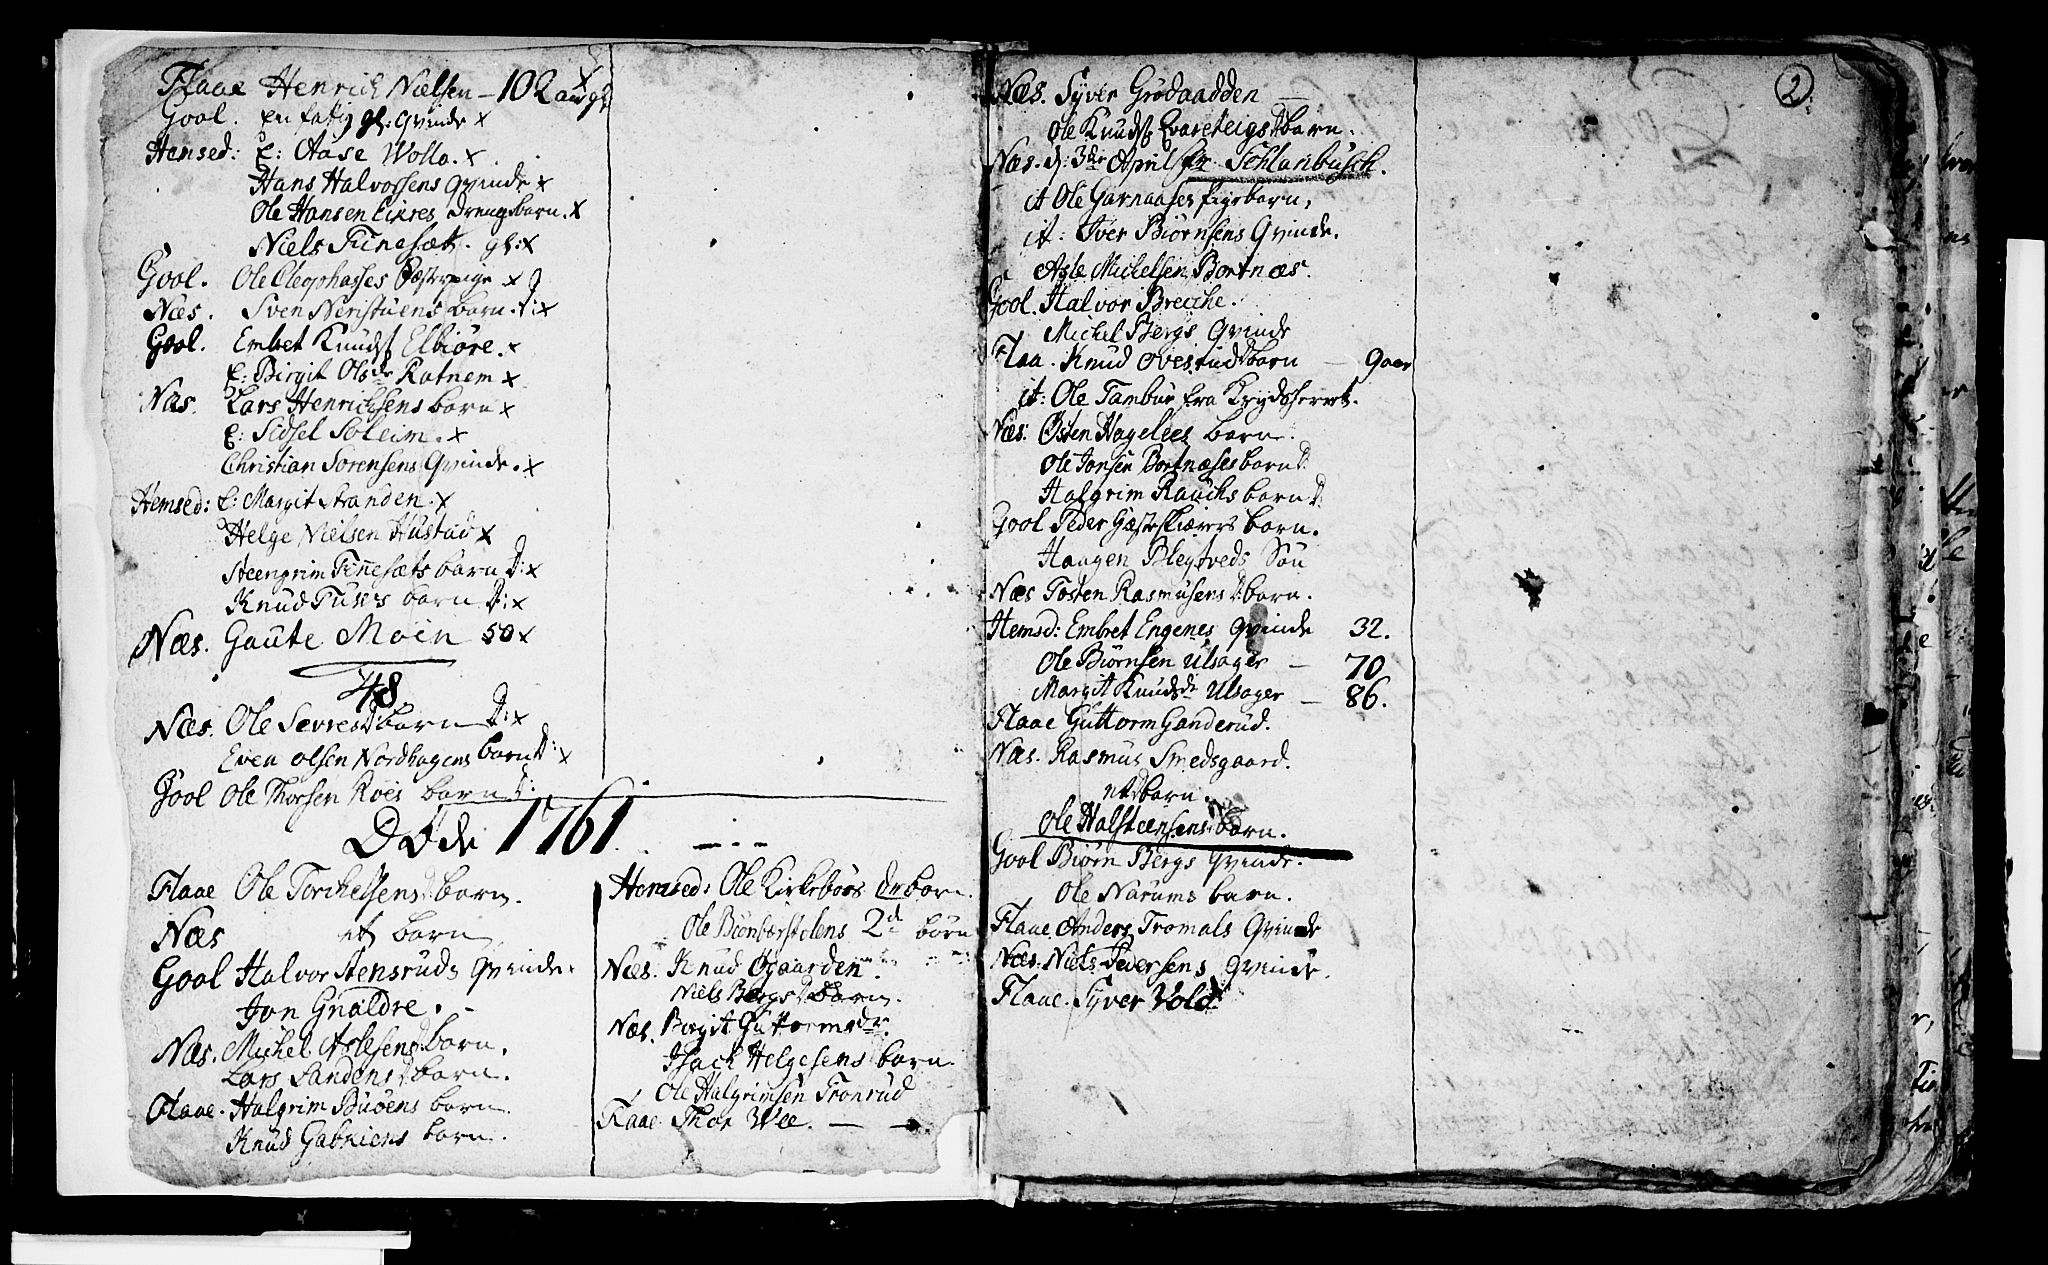 Flaae Henrich Nielsen — 102 aar gl. x
Gool. En fattig gl: Qvinde x
Hemsed: E: Aase Wolla. x
Hans Halvorsens Qvinde x
Ole Hansen Eikres Drengebarn. x
Niels Tinesæt. gl: x
Gool. Ole Cleophasses x
Næs. Sven Neristuens barn. D: x
Gool. Embret Knuds Elbiöre. x
E: Birgit Olsdr Ratnem x
Næs. Lars Henrichsens barn x
E: Sidsel Soleim. x
Christian Sörensens Qvinde. x
Hemsed: E: Margit Stranden. x
Helge Nielsen Hustad x
Steengrim Tinesæts barn D: x
Knud Tuves barn D: x
Næs. Gaute Moen 50 x
48
Næs. Ole Sevres barn D: x
Even Olsen Nordhagens barn D: x
Gool Ole Thorsen Roes barn D:
Döde 1761.
Flaae Ole Torchelsens barn.
Næs et barn
Gool Halvor Stensruds Qvinde.
Jon Gnaldre.
Næs. Michel Aslesens barn.
Lars Sandens barn.
Flaae. Halgrim Buöens barn
Knud Gabriens barn.
Hemsed: Ole Kirkeböes barn.
Ole 2d börn
Næs. Knud Ögaarden.
Niels Bergs barn.
Næs. Birgit Guttormsdr.
Isach Helgesens barn
Ole Halgrimsen Tronrud
Flaae. Thor Wee. —
2
Næs. Syver Grödaadden —
Ole Knuds barn.
Næs. d: 3de April Schlanbusch.
it Ole Garnaases pigebarn,
it: Iver Biörnsens Qvinde.
Asle Michelsen Bortnæs.
Gool. Halvor Brecche.
Michel Bergs Qvinde
Flaa. Knud Ovesrud barn — 9 aar
it: Ole Tambur fra Krydsherret.
Næs: Östen Hagelees barn.
Ole Jonsen Bortnæses barn D:
Halgrim Rauchs barn D:
Gool Peder barn.
Haagen Blegtveds Sön
Næs Tosten Rasmusens barn.
Hemsd: Embret Engenes Qvinde 32.
Ole Biörnsen Ulsager — 70
Margit Knudsdr Ulsager — 86.
Flaae Guttorm Ganderud.
Næs. Rasmus Smedsgaard.
et barn.
Ole Halsteensens barn.
Gool Biörn Bergs Qvinde.
Ole Narums barn.
Flaae. Anders Tromals Qvinde
Næs. Niels Pedersens Qvinde.
Flaae. Syver Vold